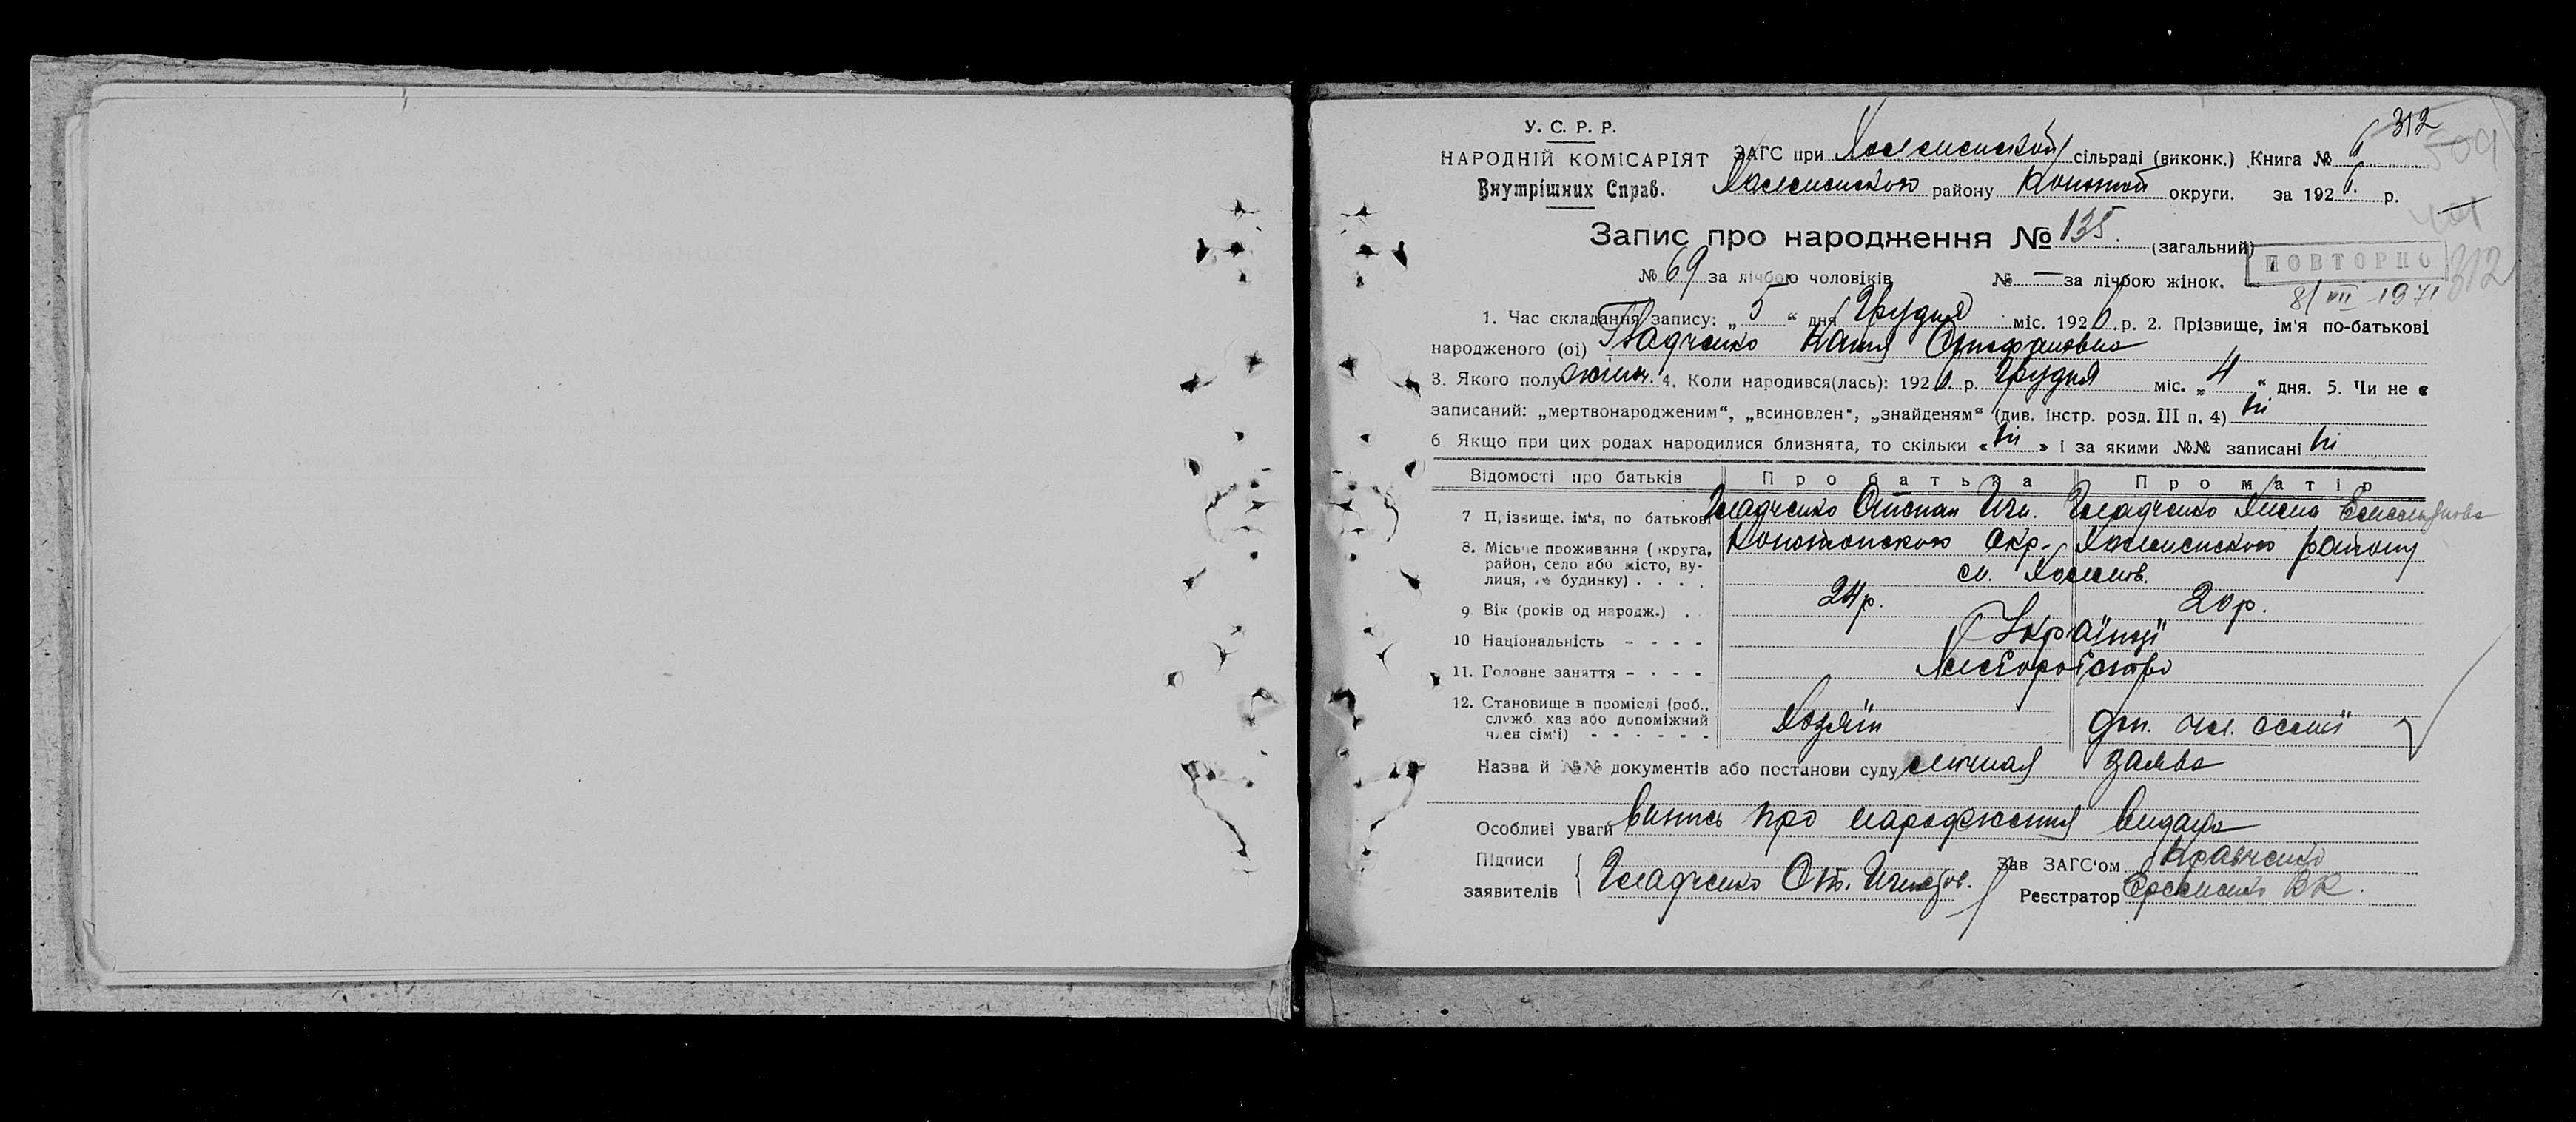 312
У. С. Р. Р.
НАРОДНІЙ КОМІСАРІЯТ
Внутрішних Справ.
ЗАГС при сільраді (виконк.) Книга № 6
району Конотоп округи. за 1926 р.
Запис про народження № 135. (загальний)
№ 69 за лічбою чоловіків № — за лічбою жінок.
ПОВТОРНО 312
8/VII 1971
1. Час складання запису: „ 5 “ дня Грудня міс. 1926 р. 2. Прізвище, ім'я по-батькові
народженого (ої) Гладченко Катя Степановна
3. Якого полу жін. 4. Коли народився(лась): 1926 р. Грудня міс. „ 4 “ дня. 5. Чи не є
записаний: „мертвонародженим“, „всиновлен“, „знайденям“ (див. інстр. розд. III п. 4) ні
6 Якщо при цих родах народилися близнята, то скільки « ні » і за якими №№ записані ні
Відомості про батьків Про батька Про матір
7 Прізвище. ім'я, по батькові Гладченко Степан Игн. Гладченко
8. Місьце проживання (округа, район, село або місто, вулиця, № будинку) . . . . Конотопскою Окр. району
9. Вік (років од народж.) . 24 р. 20 р.
10 Національність - - - - Українці
11. Головне заняття - - - - Хліборобство
12. Становище в промислі (роб., служб хаз або допоміжний член сім'ї) - - - - - - Хозяїн доп. чл. семї
Назва й №№ документів або постанови суду личная заява
Особливі уваги випись про народження видана
Підписи заявителів Гладченко Ст. Игнатов.
Зав ЗАГС'ом Кравченко
Реєстратор